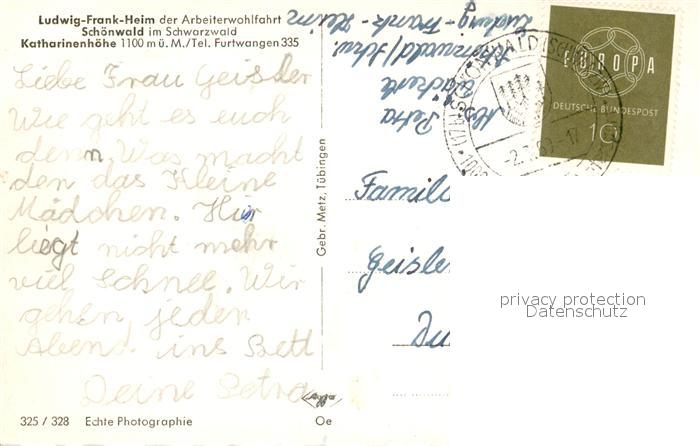 Ludwig-Frank-Heim der Arbeiterwohlfahrt
Schönwald im Schwarzwald
Katharinenhöhe 1100 m ü. M./Tel. Furtwangen 335
Liebe Frau Geisler
Wie geht es euch
denn. Was macht
den das Kleine
Mädchen. Hir
liegt nicht mehr
viel Schnee. Wir
gehen jeden
Abend ins Bett
Deine Petra
325 / 328 Echte Photographie
Oe
Gebr. Metz, Tübingen
Abs.
Petra
Schönwald/Schw.
Ludwig-Frank-Heim
EUROPA
DEUTSCHE BUNDESPOST
10
Famil
Geisle
Du
privacy protection
Datenschutz